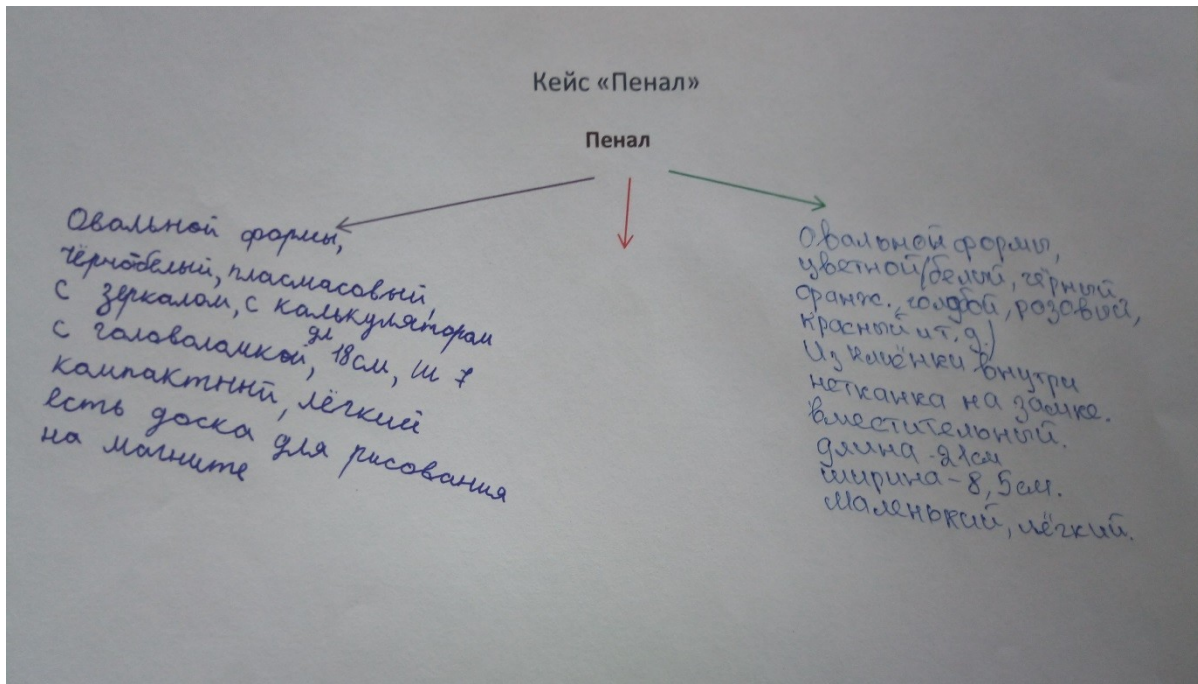 Кейс «Пенал»
Пенал
Овальной формы,
чёрнобелый, пласмасовый,
с зеркалом, с калькулятором
с головоломкой, дл 18см, ш 7
компактнтй, лёгкий
есть доска для рисования
на магните
Овальной формы,
цветной (белый, чёрный,
оранж. голубой, розовый,
красный и т. д.)
Из клиёнки внутри
нетканка на замке.
вместительный.
длина -21см
ширина-8,5см.
маленький, лёгкий.